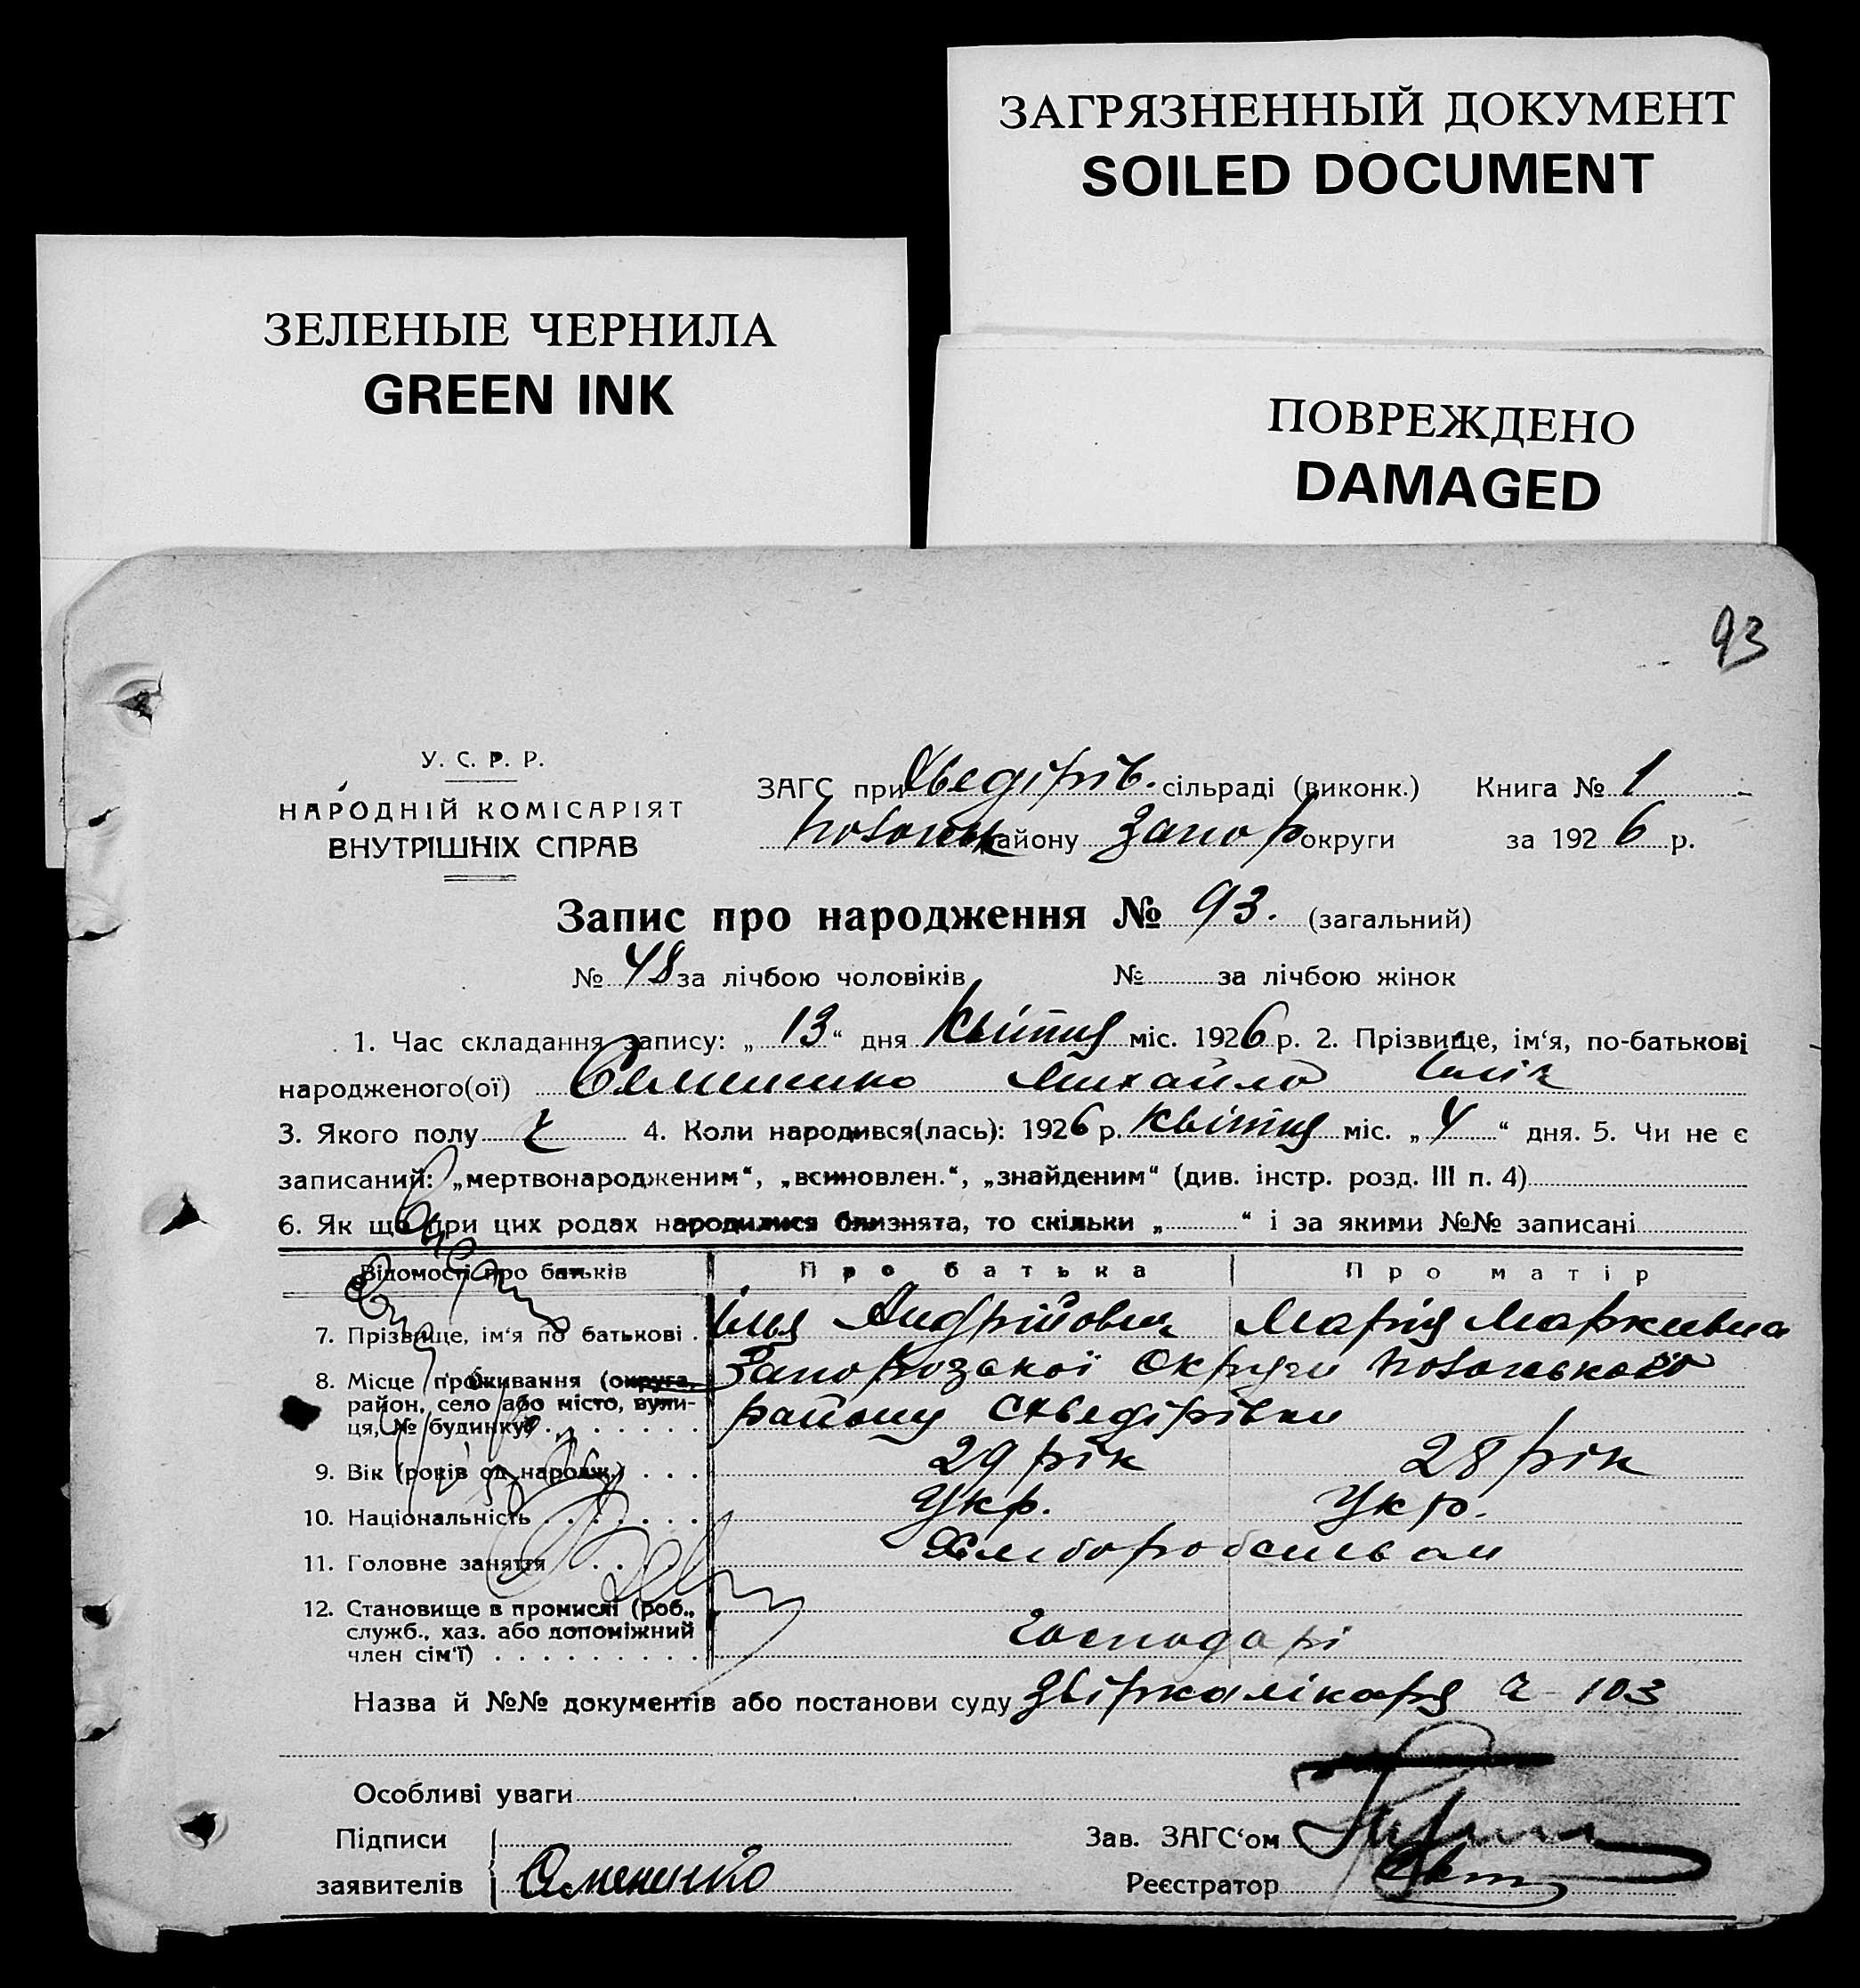 ЗАГРЯЗНЕННЫЙ ДОКУМЕНТ
SOILED DOCUMENT
ЗЕЛЕНЫЕ ЧЕРНИЛА
GREEN INK
ПОВРЕЖДЕНО
DAMAGED
93
У. С. Р. Р.
НАРОДНІЙ КОМІСАРІЯТ
ВНУТРІШНІХ СПРАВ
ЗАГС при Хведірів. сільраді (виконк.) Книга № 1
району Запор округи за 1926 р.
Запис про народження № 93. (загальний)
№ 48 за лічбою чоловіків № за лічбою жінок
1. Час складання запису: „ 13 “ дня Квітня міс. 1926 р. 2. Прізвище, ім‘я, по-батькові
народженого(ої) Семененко Михайло Ілліч
3. Якого полу ч 4. Коли народився(лась): 1926 р. Квітня міс. „ 4 “ дня. 5. Чи не є
записаний: „мертвонародженим“, „всиновлен.“, „знайденим“ (див. інстр. розд. III п. 4)
6. Як що при цих родах народилися близнята, то скільки „ “ і за якими №№ записані
Відомості про батьків Про батька Про матір
7. Прізвище, ім‘я по батькові . Ілья Андрійович Марія Маркивна
8. Місце проживання (округа, район, село або місто, вулиця, № будинку) Запорозької Округи
району Схведірівки
9. Вік (років од народж.) . . . 29 рік 28 рік
10. Національність . . . . . . . Укр. Укр.
11. Головне заняття . . . . Хлиборобством
12. Становище в промислі (роб.,
служб., хаз. або допоміжний
член сім‘ї) . . . . . . . . . господарі
Назва й №№ документів або постанови суду Звірка лікаря ч 103
Особливі уваги
Підписи Зав. ЗАГС‘ом
заявителів Семененко Реєстратор